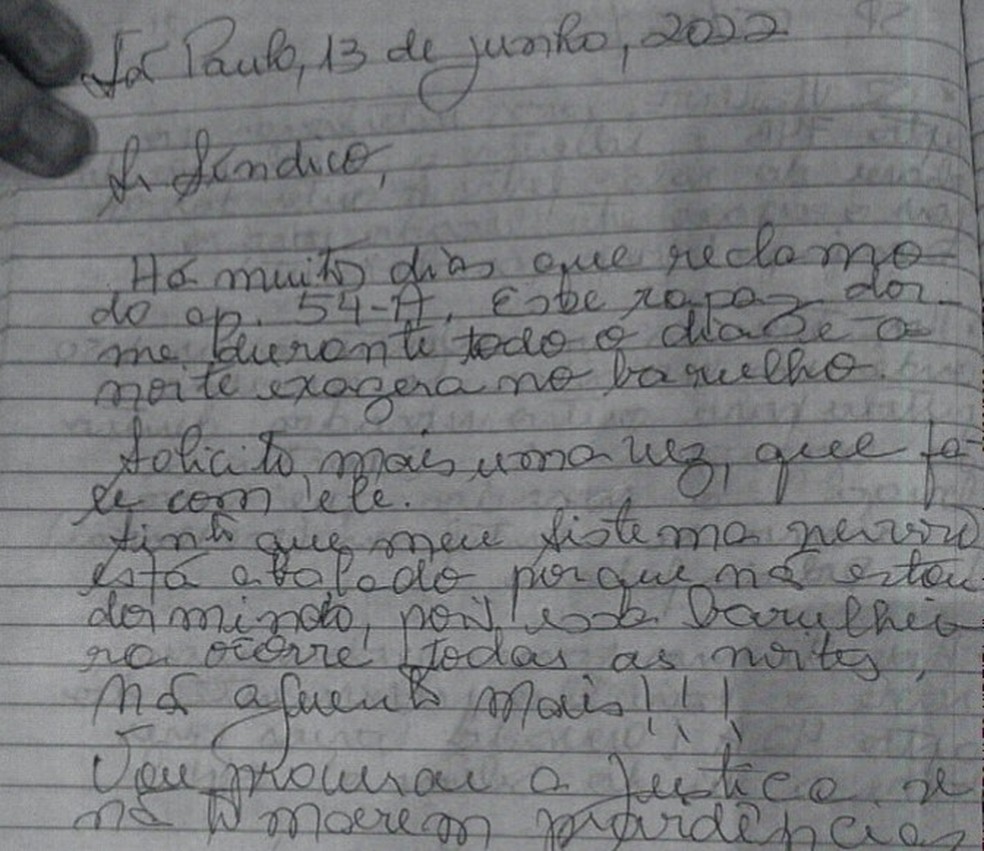 São Paulo, 13 de junho, 2022
Sr Síndico,
Há muitos dias que reclamo
do ap. 54-A. Esse rapaz dor-
me durante todo o dia e a
noite exagera no barulho.
Solicito mais uma vez, que fa-
le com ele.
Sinto que meu sistema nervoso
está abalado porque não estou
dormindo, pois essa barulhei-
ra ocorre todas as noites,
não aguento mais!!!
Vou procurar a Justiça se
não tomarem providências